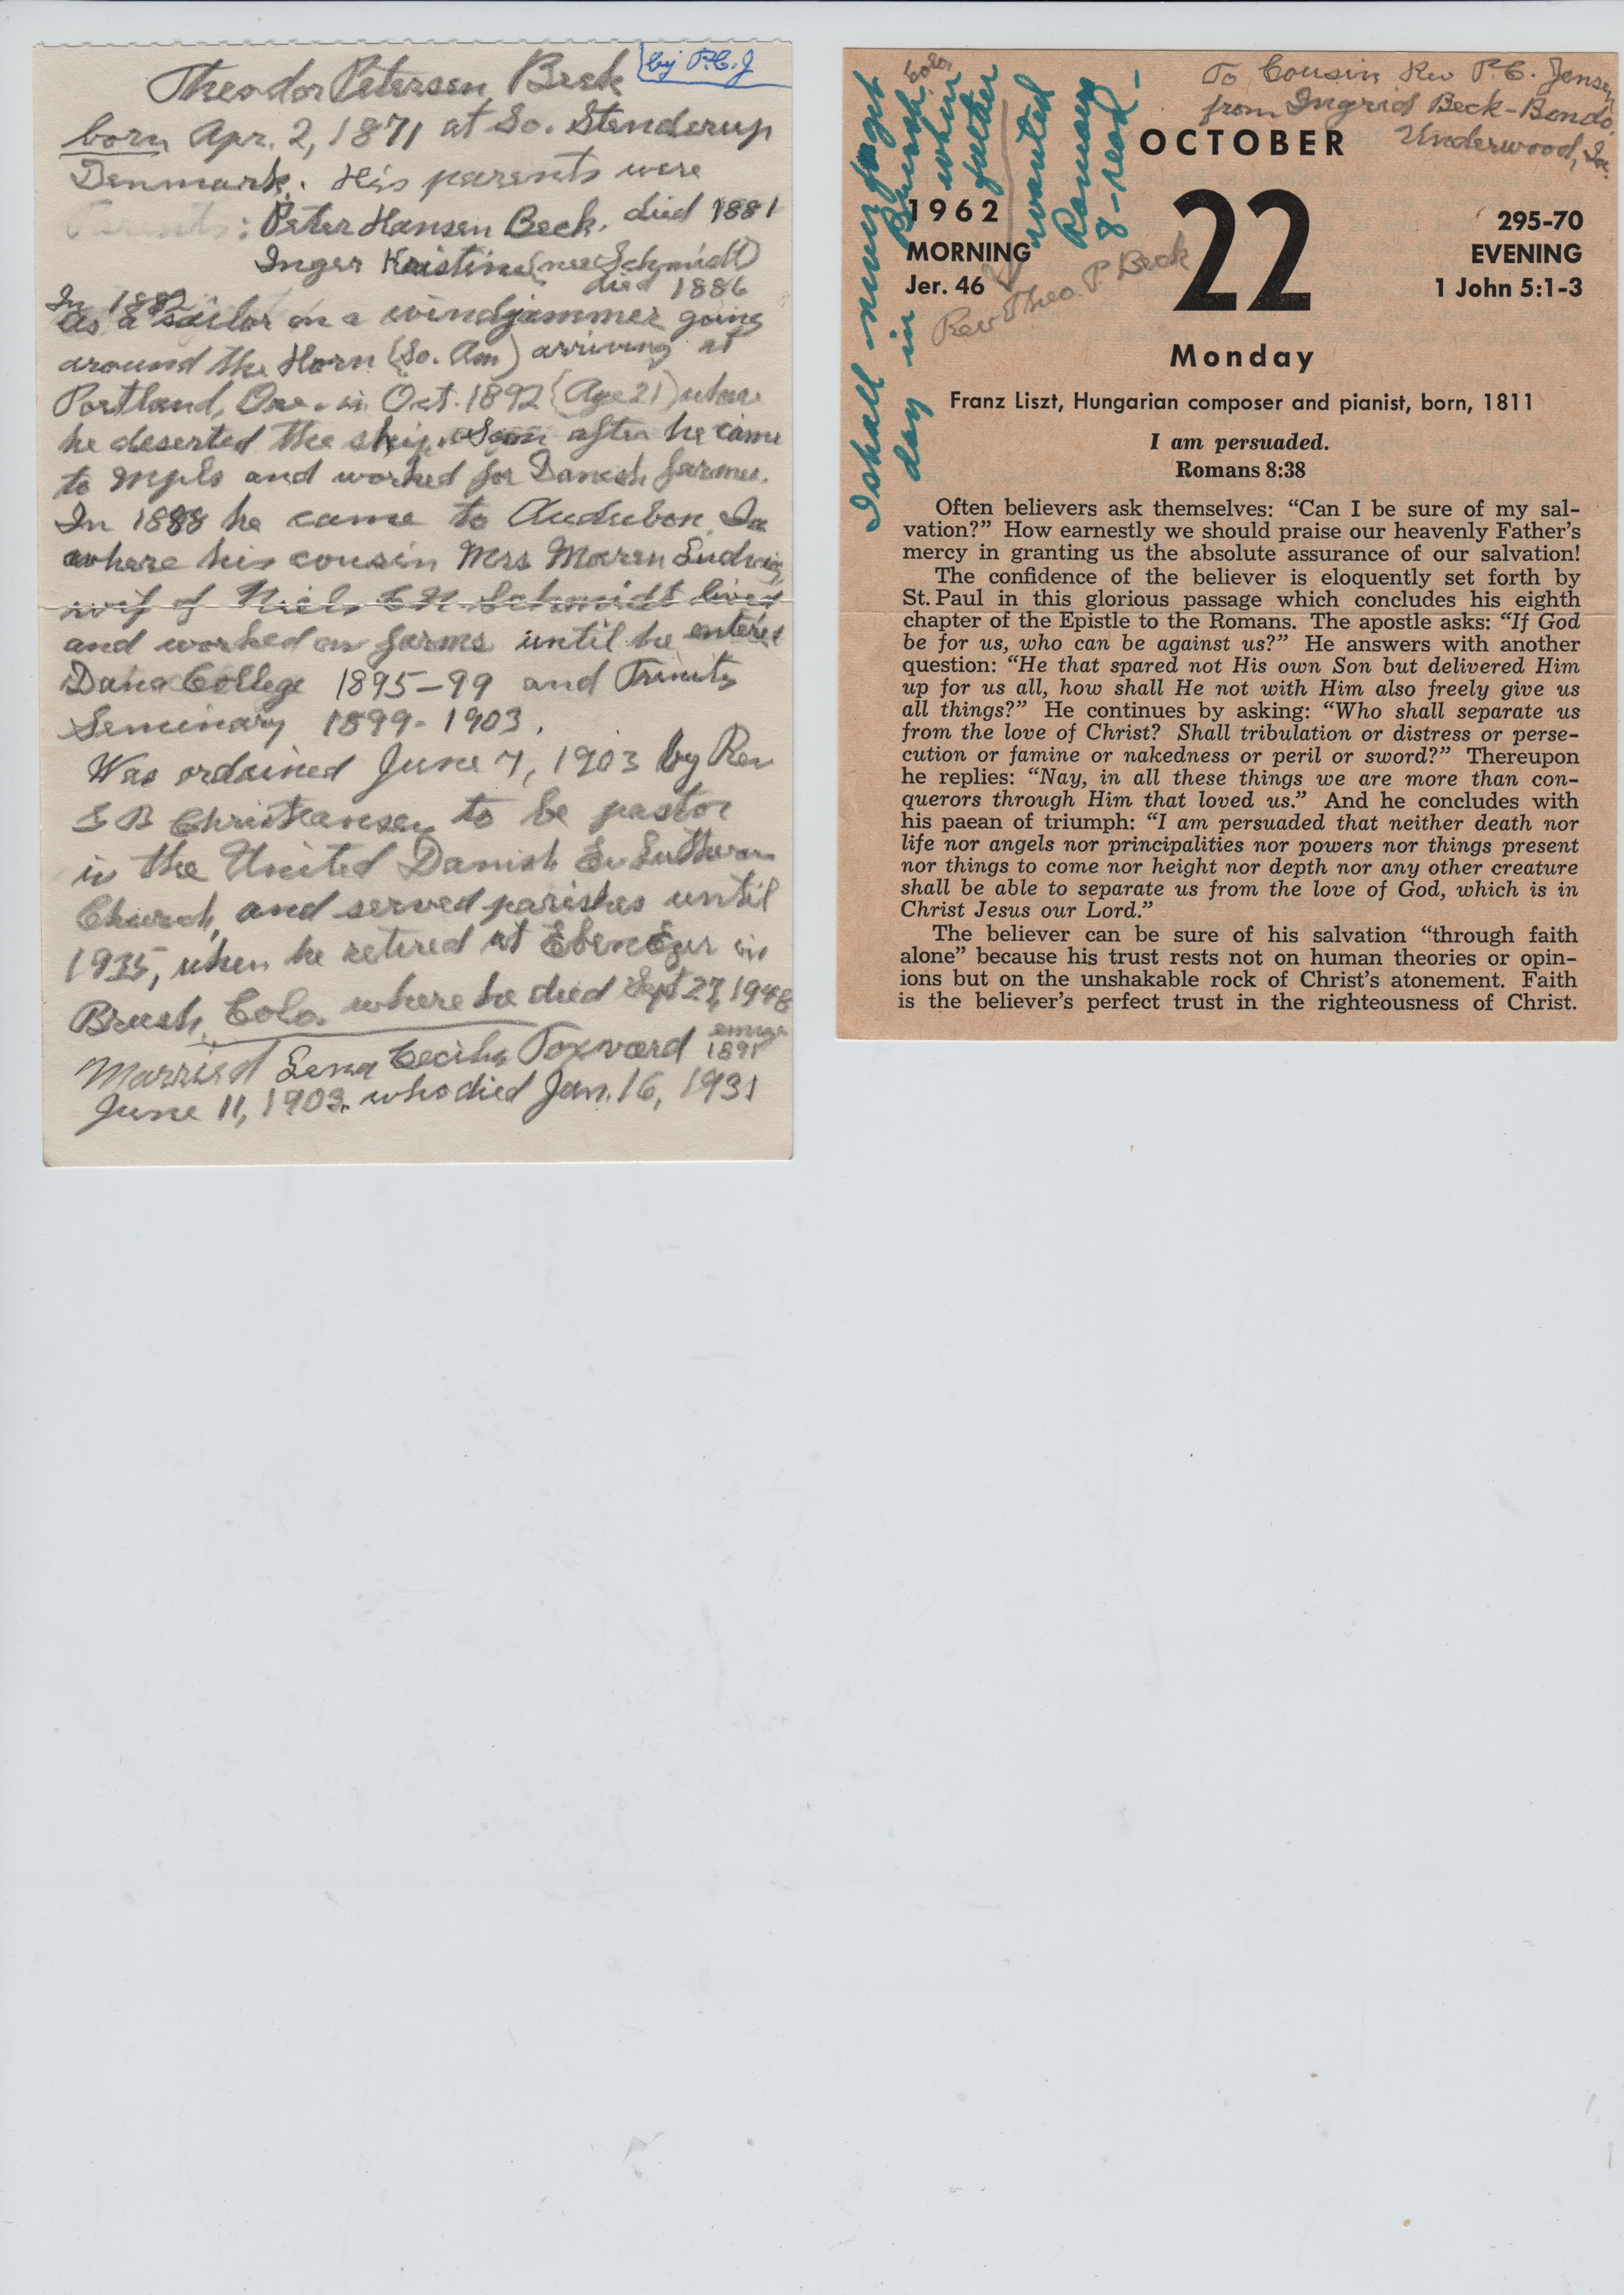 Theodor Petersen Beck
by P.C.J
born Apr. 2, 1871 at So. Stenderup
Denmark. His parents were
Parents: Peter Hansen Beck. died 1881
Inger Kristine (nee Schmidt)
died 1886
In 1882
as a sailor on a windjammer going
around the Horn (So. Am) arriving at
Portland, Ore. in Oct. 1892 (Age 21) where
he deserted the ship. Soon after he came
to Mpls and worked for Danish farmer.
In 1888 he came to Audubon Ia
where his cousin Mrs Maren Ludvig,
wife of Niels Schmidt lived
and worked on farms until he entered
Dana College 1895-99 and Trinity
Seminary 1899-1903.
Was ordained June 7, 1903 by Rev
Christiansen to be pastor
in the United Danish Ev Lutheran
Church, and served parishes until
1935, when he retired at EbenEzer in
Brush, Colo. where he died Sept 27, 1948
Married Lena Cecilia Toxvard 1891
June 11, 1903. who died Jan. 16, 1931
To Cousin Rev P.C. Jensen
from Ingrid Beck-Bondo
Underwood, Ia.
I shall never forget
day in Brush
Colo
when
father
wanted
Romans
8-read-
Rev Theo. P. Beck
OCTOBER
1962
MORNING
Jer. 46
22
295-70
EVENING
1 John 5:1-3
Monday
Franz Liszt, Hungarian composer and pianist, born, 1811
I am persuaded.
Romans 8:38
Often believers ask themselves: “Can I be sure of my sal-
vation?” How earnestly we should praise our heavenly Father’s
mercy in granting us the absolute assurance of our salvation!
The confidence of the believer is eloquently set forth by
St. Paul in this glorious passage which concludes his eighth
chapter of the Epistle to the Romans. The apostle asks: “If God
be for us, who can be against us?” He answers with another
question: “He that spared not His own Son but delivered Him
up for us all, how shall He not with Him also freely give us
all things?” He continues by asking: “Who shall separate us
from the love of Christ? Shall tribulation or distress or perse-
cution or famine or nakedness or peril or sword?” Thereupon
he replies: “Nay, in all these things we are more than con-
querors through Him that loved us.” And he concludes with
his paean of triumph: “I am persuaded that neither death nor
life nor angels nor principalities nor powers nor things present
nor things to come nor height nor depth nor any other creature
shall be able to separate us from the love of God, which is in
Christ Jesus our Lord.”
The believer can be sure of his salvation “through faith
alone” because his trust rests not on human theories or opin-
ions but on the unshakable rock of Christ’s atonement. Faith
is the believer’s perfect trust in the righteousness of Christ.